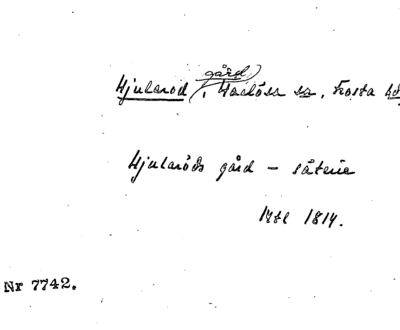 Hjularöd (gård), Harlösa sn, Frosta hd
Hjularöds gård – säteri
1814.
Nr 7742.